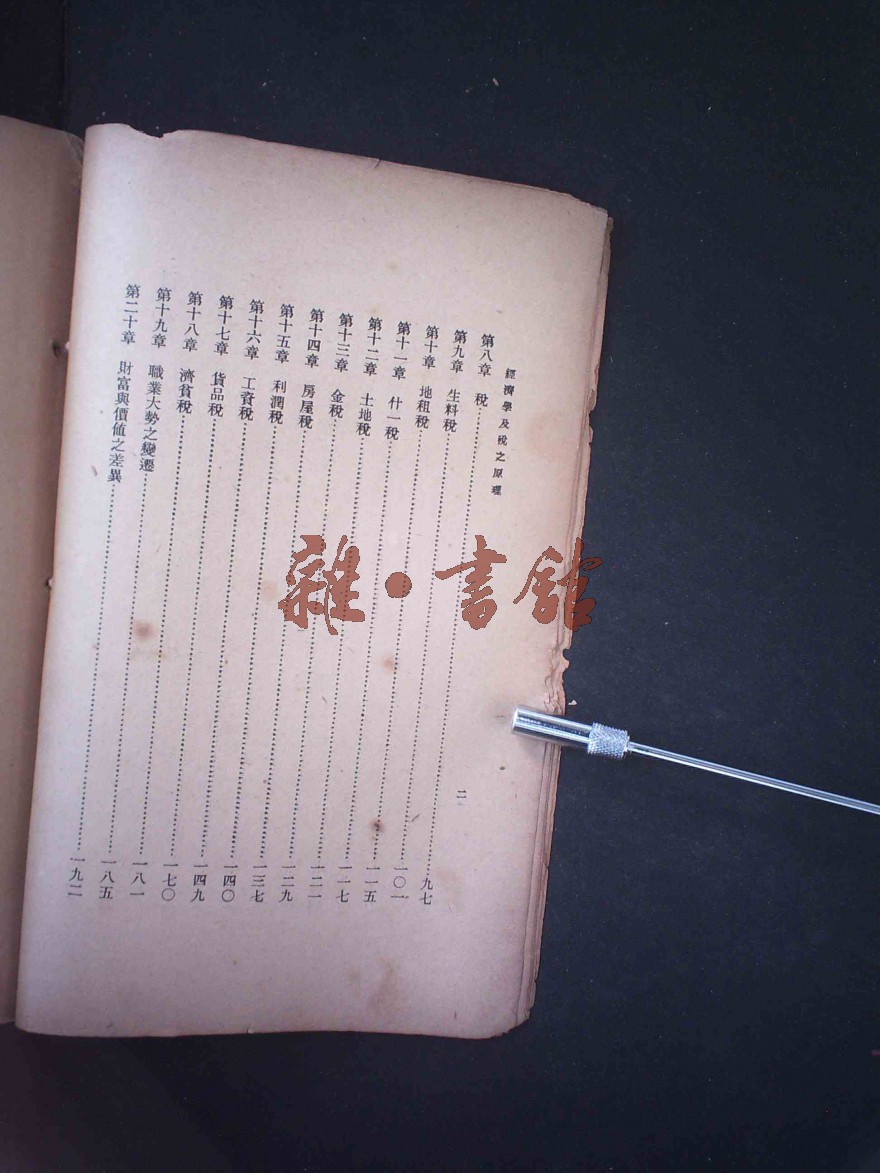 經濟學及稅之原理
二
第八章 稅……九七
第九章 生料稅……一〇一
第十章 地租稅……一一五
第十一章 什一稅……一一七
第十二章 土地稅……一二一
第十三章 金稅……一二九
第十四章 房屋稅……一三七
第十五章 利潤稅……一四〇
第十六章 工資稅……一四九
第十七章 貨品稅……一七〇
第十八章 濟貧稅……一八一
第十九章 職業大勢之變遷……一八五
第二十章 財富與價值之差異……一九二
雜·書館